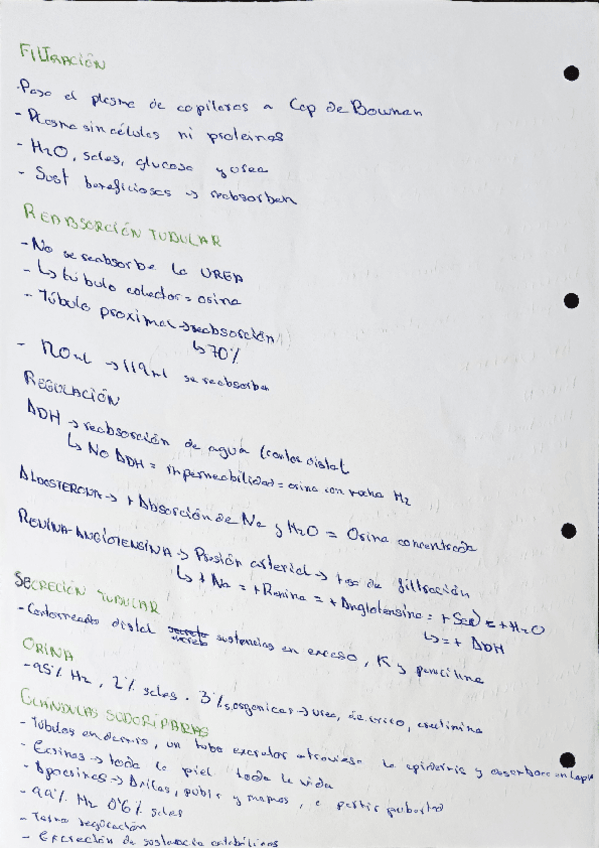 FILTRACIÓN
·Paso el plasma de capilares a Cap de Bowman
- Plasma sin células ni proteínas
- H2O, sales, glucosa y urea
- Sust beneficiosas → reabsorben
REABSORCIÓN TUBULAR
- No se reabsorbe la UREA
- ↳ túbulo colector = orina
- Túbulo proximal → reabsorción
↳ 70%
- 120 ml → 119 ml se reabsorben
REGULACIÓN
ADH → reabsorción de agua (contor distal
↳ No ADH = impermeabilidad = orina con mucha H2
ALDOSTERONA → + Absorción de Na y H2O = Orina concentrada
RENINA-ANGIOTENSINA → Presión arterial → tasa de filtración
↳ + Na = + Renina = + Angiotensina = + Sed = + H2O
↳ = + ADH
SECRECIÓN TUBULAR
- Contorneado distal secreta sustancias en exceso, K y penicilina
ORINA
- 95% H2, 2% sales. 3% s.organicas → urea, ác úrico, creatinina
GLANDULAS SUDORIPARAS
- Túbulos en dermis, un tubo excretor atraviesa la epidermis y desemboca en la piel
- Ecrinas → toda la piel toda la vida
- Apocrinas → Axilas, pubis y mamas, a partir pubertad
- 99% H2 0'6% sales
- Termo regulación
- Excreción de sustancias catabólicas